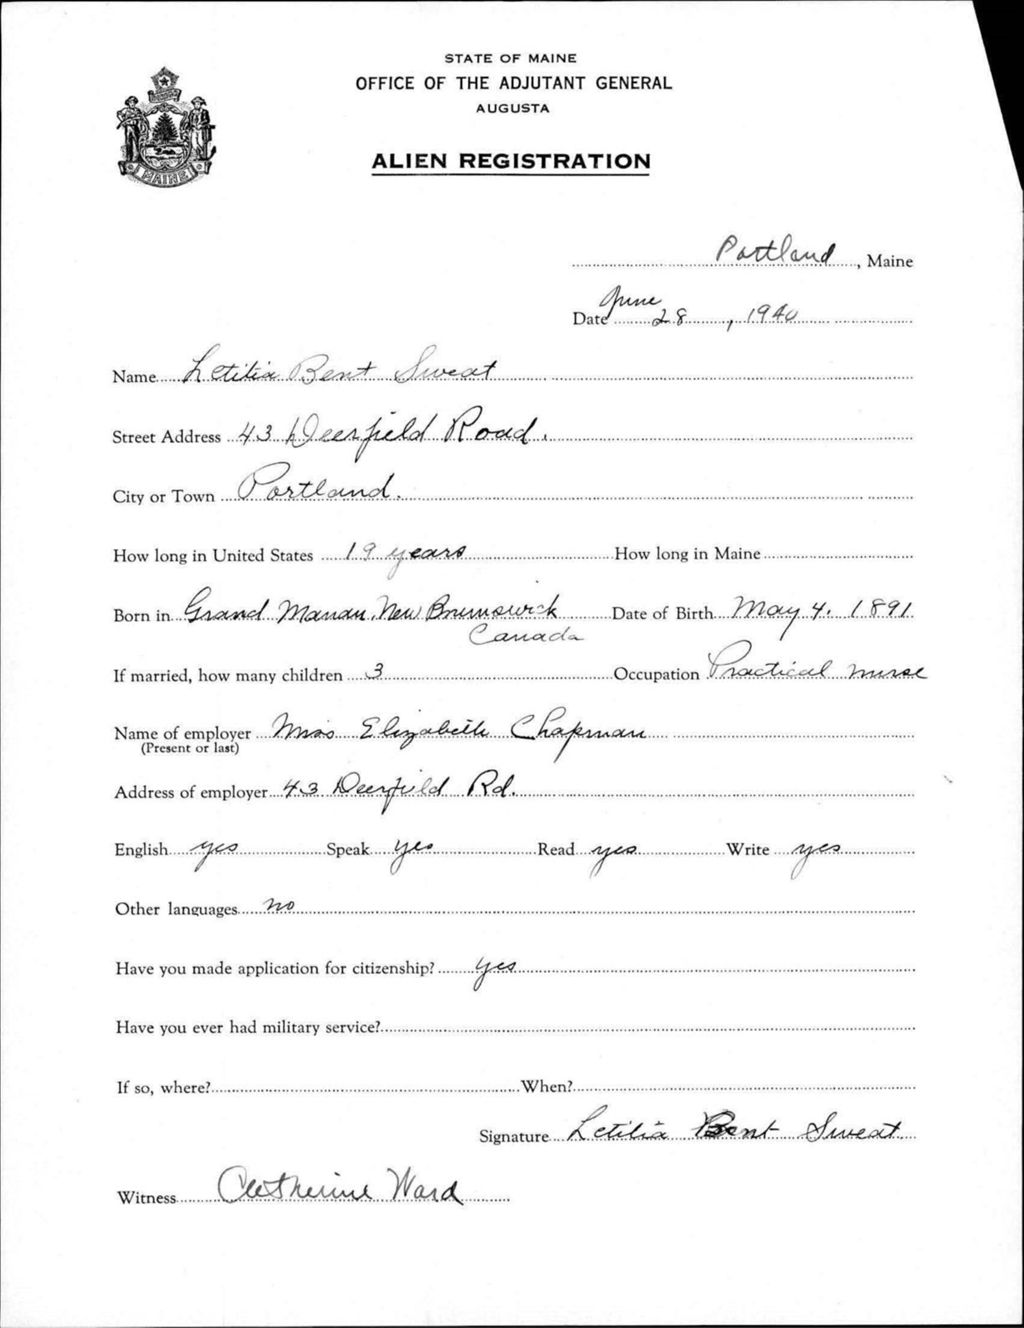 STATE OF MAINE
OFFICE OF THE ADJUTANT GENERAL
AUGUSTA
ALIEN REGISTRATION
MAINE
Portland, Maine
Date June 28, 1940
Name Letitia Bent Sweat
Street Address 43 Deerfield Road.
City or Town Portland.
How long in United States 19 years How long in Maine
Born in Grand Manan, New Brunswick Date of Birth May 4. 1891.
Canada
If married, how many children 3 Occupation Practical nurse
Name of employer Mrs Elizabeth Chapman
(Present or last)
Address of employer 43 Deerfield Rd.
English yes Speak yes Read yes Write yes
Other languages no
Have you made application for citizenship? yes
Have you ever had military service?
If so, where? When?
Signature Letitia Bent Sweat
Witness Catherine Ward